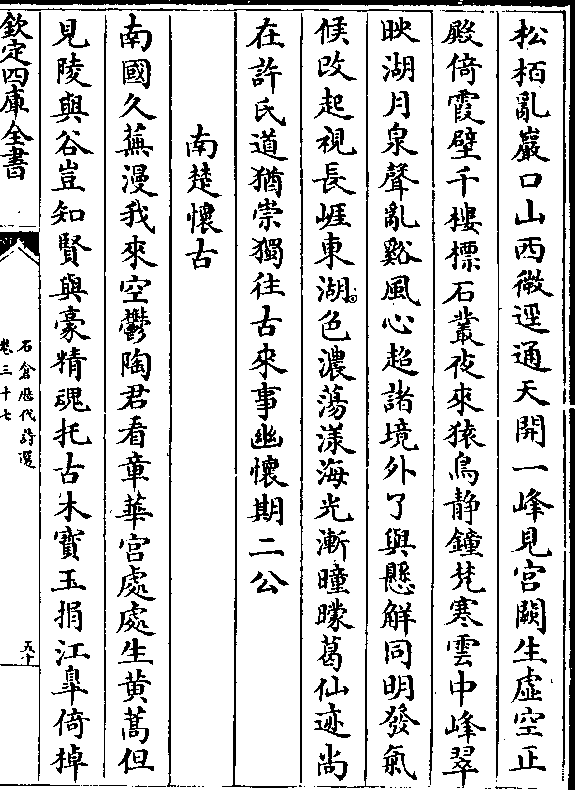 松栢亂巖口山西微逕通天開一峰見宮闕生虛空正
殿倚霞壁千樓標石叢夜來猿鳥静鐘梵寒雲中峰翠
映湖月泉聲亂谿風心超諸境外了與懸解同明發氣
候改起視長崖東湖色濃蕩漾海光漸曈曚葛仙迹尚
在許氏道猶崇獨往古來事幽懷期二公
南楚懷古
南國久蕪漫我來空鬱陶君看章華宮處處生黄蒿但
見陵與谷豈知賢與豪精魂托古木寳玉捐江臯倚棹
欽定四庫全書
石倉歷代詩選
卷三十七
五十